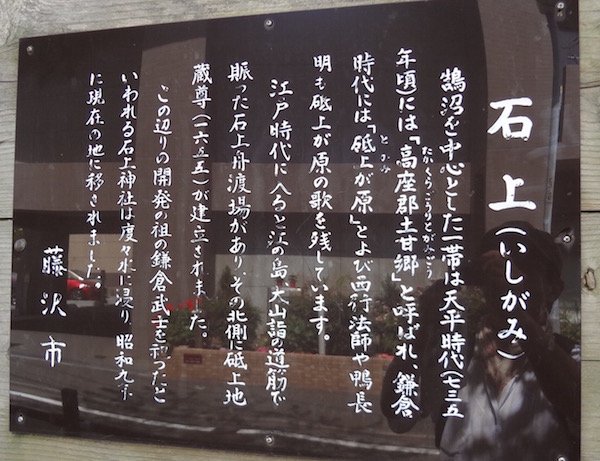 石上(いしがみ)
鵠沼を中心とした一帯は天平時代(七三五
年頃)には「高座郡土甘郷」と呼ばれ、鎌倉
たかくらこうりとがみごう
時代には「砥上が原」とよび西行法師や鴨長
とがみ
明も砥上が原の歌を残しています。
江戸時代に入ると江の島、大山詣の道筋で
賑った石上舟渡場があり、その北側に砥上地
蔵尊(一六五五)が建立されました。
この辺りの開発の祖の鎌倉武士を祀ったと
いわれる石上神社は度々水に浸り、昭和九年
に現在の地に移されました。
藤沢市